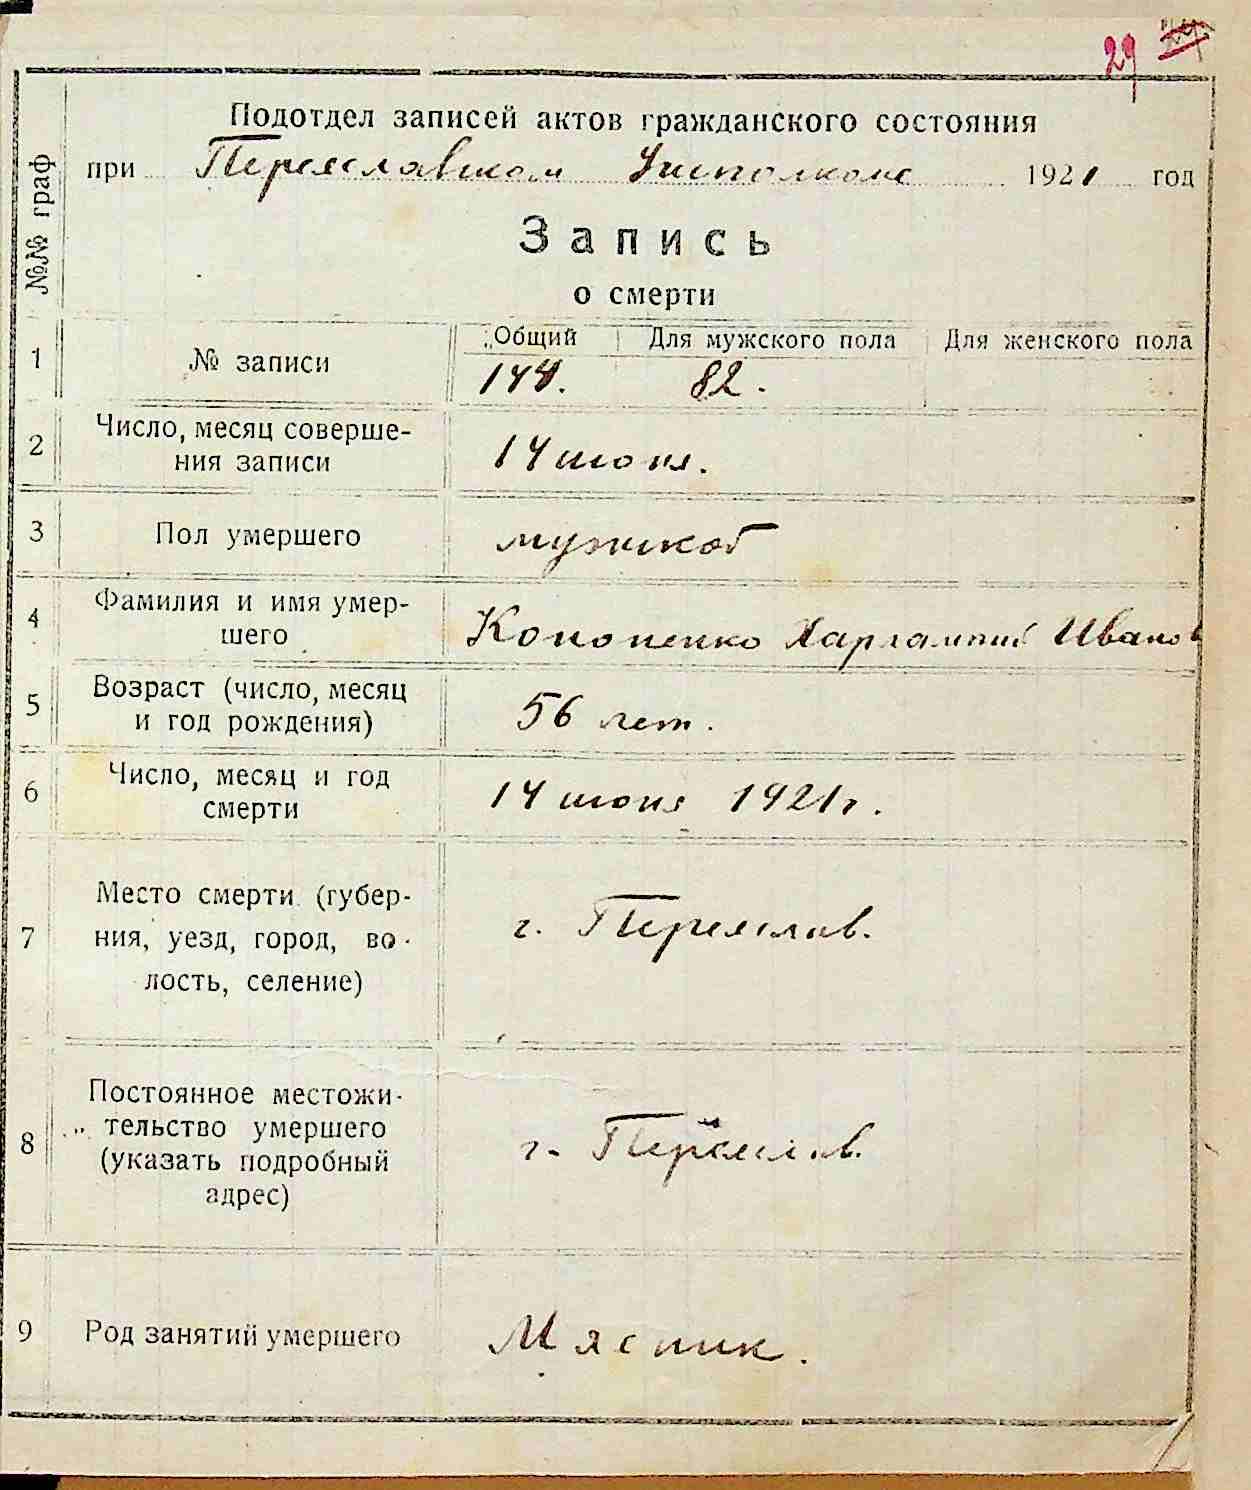 29
Подотдел записей актов гражданского состояния
при Переяславском Уисполкоме 1921 год
№№ граф
Запись
о смерти
1 № записи Общий Для мужского пола Для женского пола
144. 82.
2 Число, месяц соверше-
ния записи 14 июня.
3 Пол умершего мужской
4 Фамилия и имя умер-
шего Кононенко Харлампий Иванов
5 Возраст (число, месяц
и год рождения) 56 лет.
6 Число, месяц и год
смерти 14 июня 1921 г.
7 Место смерти (губер-
ния, уезд, город, во-
лость, селение) г. Переяслав.
8 Постоянное местожи-
тельство умершего
(указать подробный
адрес) г. Переяслав.
9 Род занятий умершего Мясник.